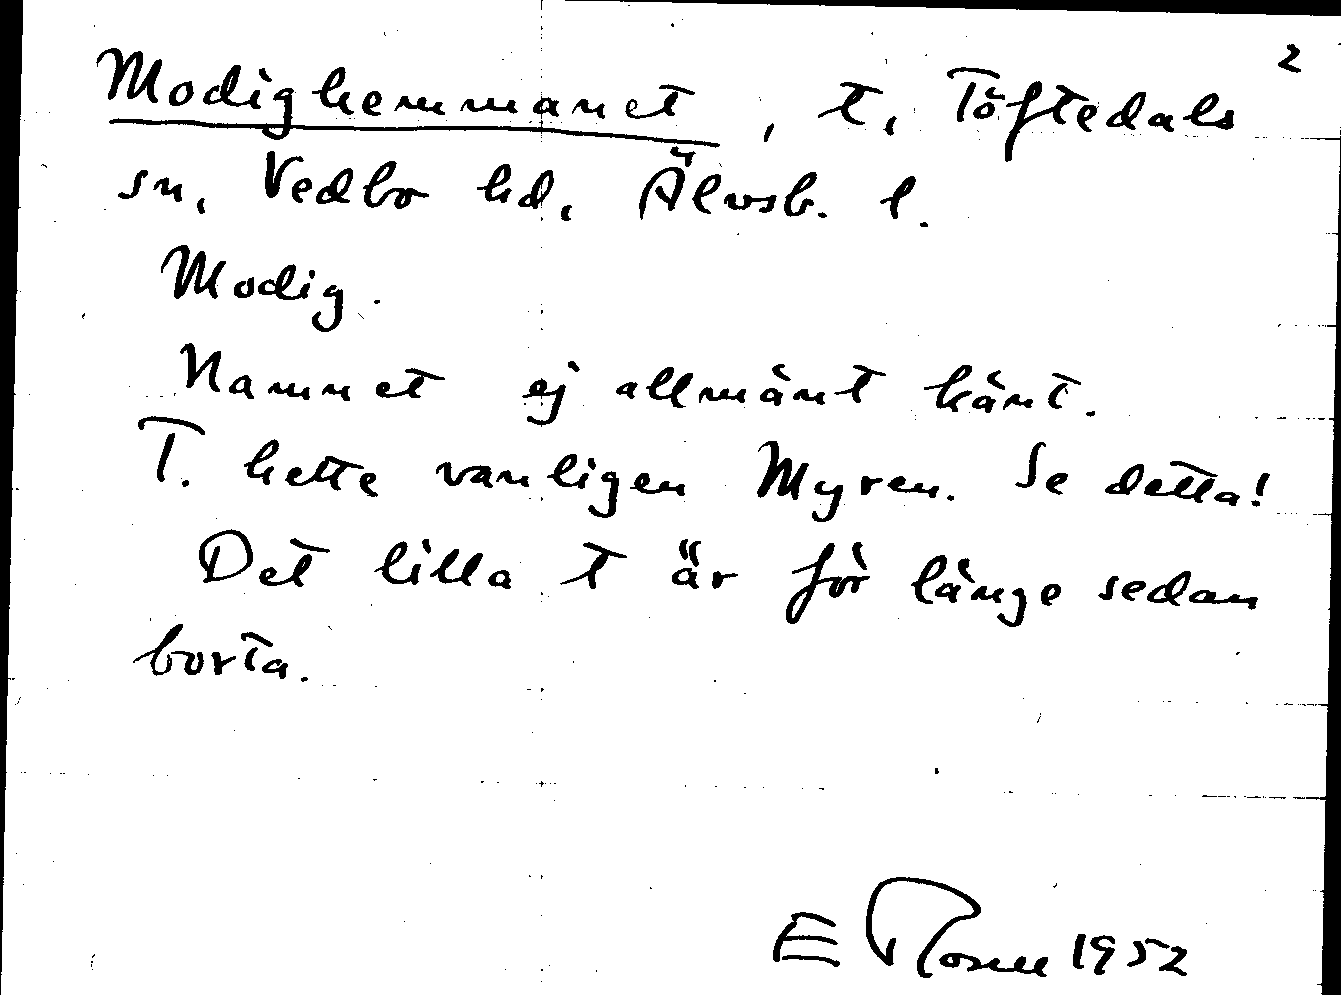 2
Modighemmanet, t. Töftedals
sn. Vedbo hd. Älvsb. l.
Modig.
Namnet ej allmänt känt.
T. hette vanligen Myren. Se detta!
Det lilla t är för länge sedan
borta.
E 1952